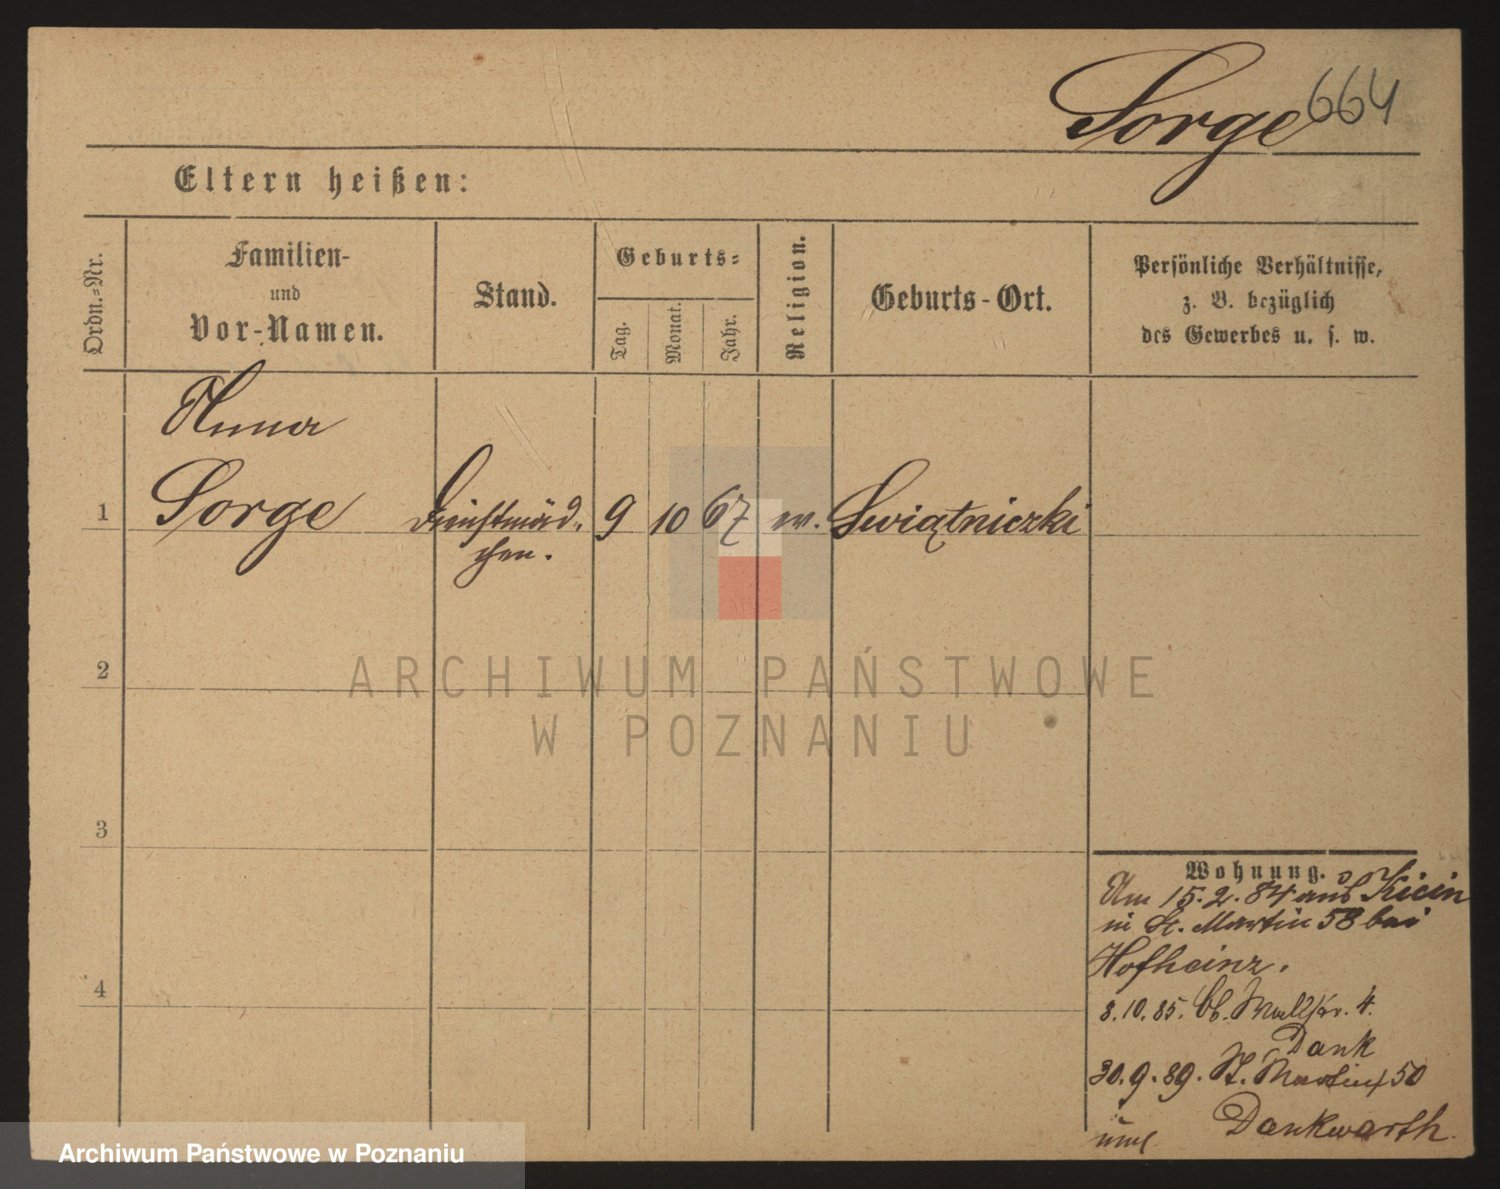 Sorge 664
Eltern heißen:
Ordn.-Nr.
Familien-
und
Vor-Namen.
Stand.
Geburts-
Tag.
Monat.
Jahr.
Religion.
Geburts-Ort.
Persönliche Verhältnisse,
z. B. bezüglich
des Gewerbes u. s. w.
Anna
1 Sorge Dienstmäd- 9 10 67 ev. Swiątniczki
chen.
2
3
4
Wohnung.
Am 15.2.84 aus Kicin
in St. Martin 58 bei
Hofheinz.
8.10.85. Wallstr. 4.
Dank
30.9.89. St. Martin 50
Dankwarth.
ARCHIWUM PAŃSTWOWE
W POZNANIU
Archiwum Państwowe w Poznaniu